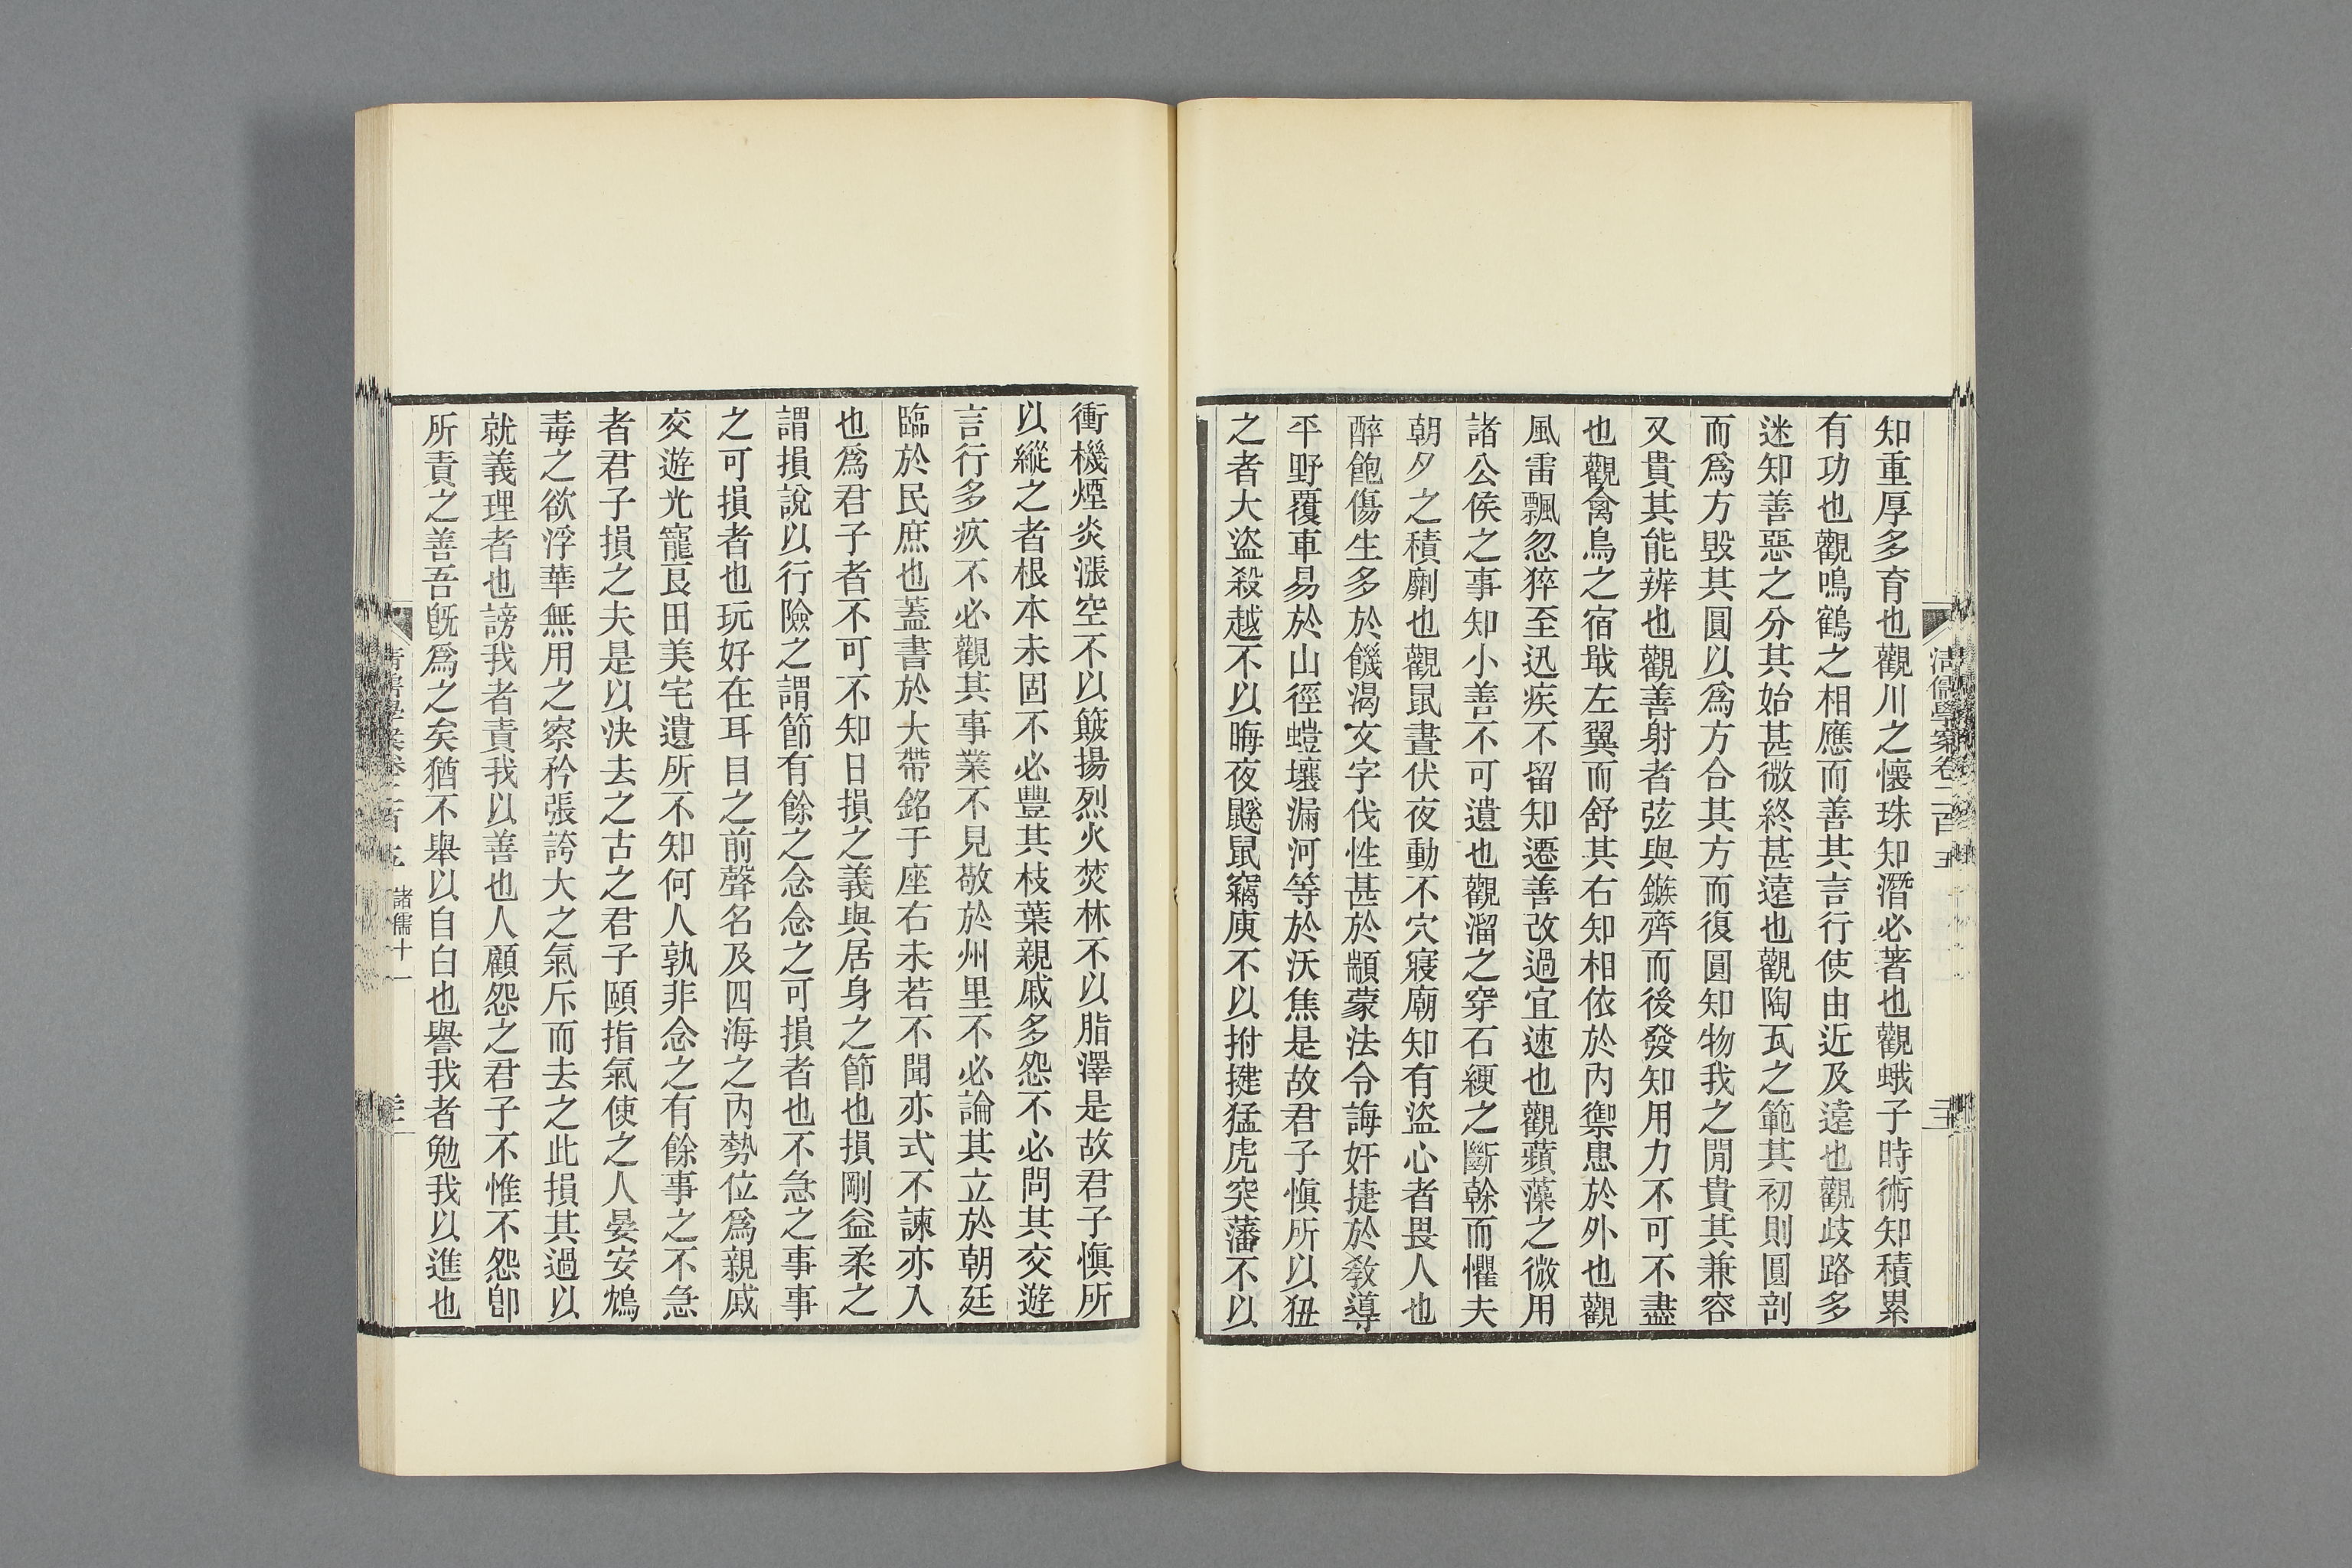 清儒學案卷二百五
知重厚多育也觀川之懷珠知潛必著也觀蛾子時術知積累
有功也觀鳴鶴之相應而善其言行使由近及遠也觀歧路多
迷知善惡之分其始甚微終甚遠也觀陶瓦之範其初則圓剖
而爲方毀其圓以爲方合其方而復圓知物我之閒貴其兼容
又貴其能辨也觀善射者弦與鏃齊而後發知用力不可不盡
也觀禽鳥之宿戢左翼而舒其右知相依於內禦患於外也觀
風雷飄忽猝至迅疾不留知遷善改過宜速也觀蘋藻之微用
諸公侯之事知小善不可遺也觀溜之穿石綆之斷榦而懼夫
朝夕之積劘也觀鼠晝伏夜動不穴寢廟知有盜心者畏人也
醉飽傷生多於饑渴文字伐性甚於顓蒙法令誨奸捷於敎導
平野覆車易於山徑螘壤漏河等於沃焦是故君子愼所以狃
之者大盜殺越不以晦夜鼷鼠竊庾不以拊揵猛虎突藩不以
衝機煙炎漲空不以簸揚烈火焚林不以脂澤是故君子愼所
以縱之者根本未固不必豐其枝葉親戚多怨不必問其交遊
言行多疚不必觀其事業不見敬於州里不必論其立於朝廷
臨於民庶也蓋書於大帶銘于座右未若不聞亦式不諫亦入
也爲君子者不可不知日損之義與居身之節也損剛益柔之
謂損說以行險之謂節有餘之念念之可損者也不急之事事
之可損者也玩好在耳目之前聲名及四海之內勢位爲親戚
交遊光寵良田美宅遺所不知何人孰非念之有餘事之不急
者君子損之夫是以決去之古之君子頤指氣使之人晏安鴆
毒之欲浮華無用之察矜張誇大之氣斥而去之此損其過以
就義理者也謗我者責我以善也人顧怨之君子不惟不怨卽
所責之善吾旣爲之矣猶不舉以自白也譽我者勉我以進也
諸儒十一